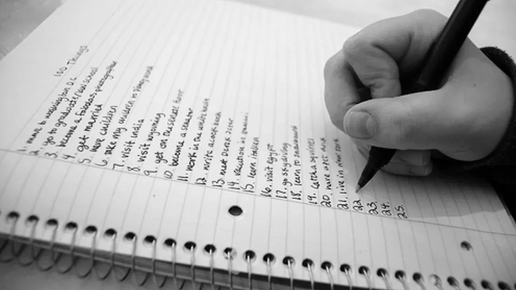 100 Things
1. move to washington D.C
2. go to graduate/law school
3. become a famous photographer
4. get married
5. have children
6. take my children to disney world
7. visit india
8. visit norway
9. get on the senate floor
10. become a senator
11. work in the white house
12. write a cook book
13. meet
14. vacation in
15. learn italian
16. visit Egypt
17. go skydiving
18. learn to snowboard
19. catch a squirrel
20. have a pet
21. live in
22.
23.
24.
25.